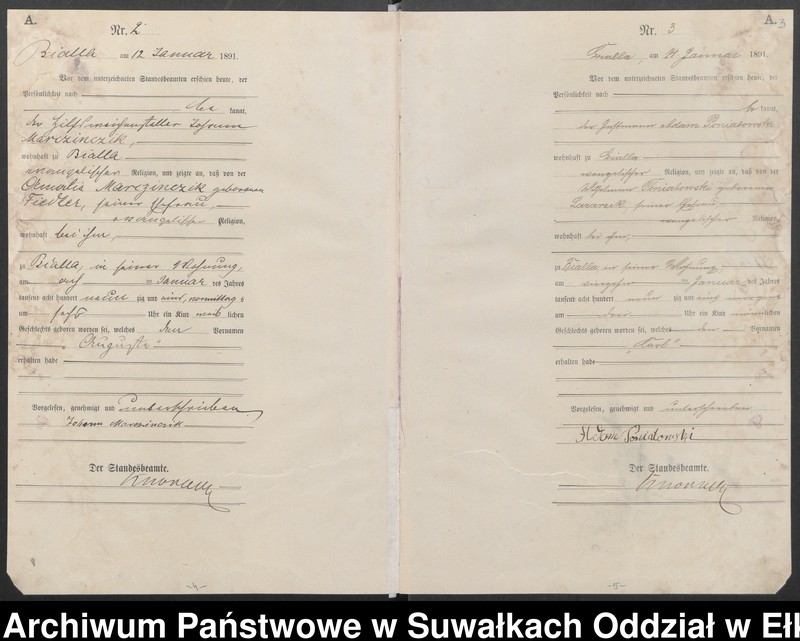 A.
Nr. 2
Bialla am 12 Januar 1891.
Vor dem unterzeichneten Standesbeamten erschien heute, der
Persönlichkeit nach
be kannt,
der Hilfsweichensteller Johann
Marczinczik,
wohnhaft zu Bialla
evangelischer Religion, und zeigte an, daß von der
Amalia Marczinczik geborenen
Fiedler, seiner Ehefrau,
evangelischer Religion,
wohnhaft bei ihm,
zu Bialla, in seiner Wohnung,
am Januar des Jahres
tausend acht hundert neun zig und eins, vormittags
um Uhr ein Kind weib lichen
Geschlechts geboren worden sei, welches den Vornamen
„Auguste“
erhalten habe
Vorgelesen, genehmigt und unterschrieben
Johann Marczinczik
Der Standesbeamte.
-4-
A. 3
Nr. 3
Bialla, am Januar 1891.
Vor dem unterzeichneten Standesbeamten erschien heute, der
Persönlichkeit nach
be kannt,
der Adam Poniatowski
wohnhaft zu Bialla
evangelischer Religion, und zeigte an, daß von der
Wilhelmine Poniatowski geborenen
seiner Ehefrau
evangelischer Religion,
wohnhaft bei ihm,
zu Bialla in seiner Wohnung,
am Januar des Jahres
tausend acht hundert neun zig und eins morgens
um drei Uhr ein Kind männlichen
Geschlechts geboren worden sei, welches den Vornamen
„Karl“
erhalten habe
Vorgelesen, genehmigt und unterschrieben
Adam Poniatowski
Der Standesbeamte.
-5-
Archiwum Państwowe w Suwałkach Oddział w Eł